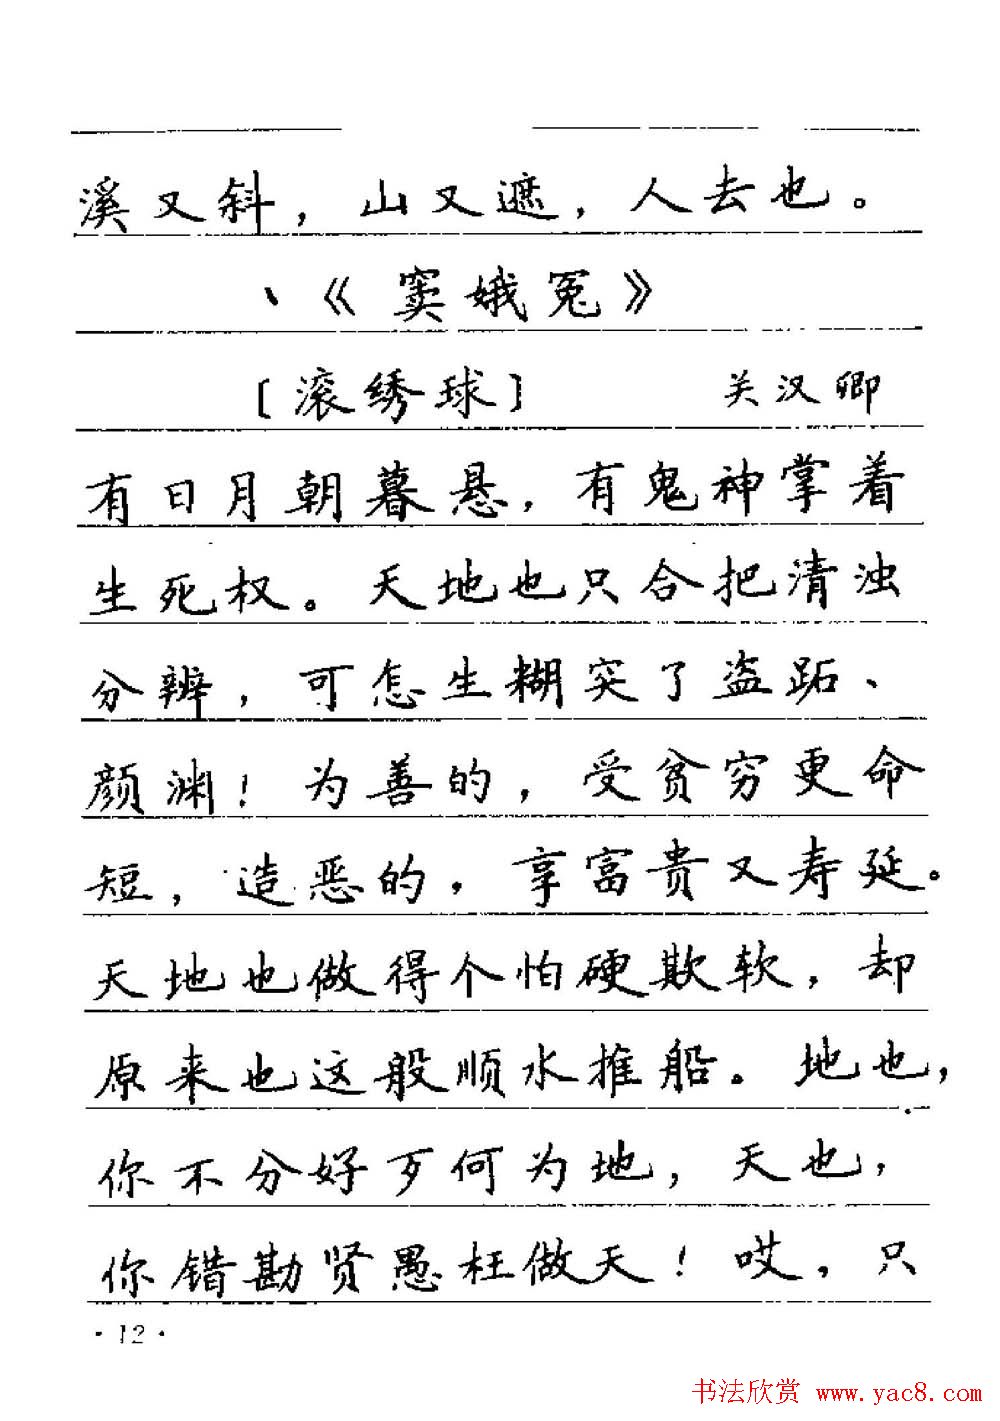 溪又斜，山又遮，人去也。
、《窦娥冤》
[滚绣球] 关汉卿
有日月朝暮悬，有鬼神掌着
生死权。天地也只合把清浊
分辨，可怎生糊突了盗跖、
颜渊！为善的，受贫穷更命
短，造恶的，享富贵又寿延。
天地也做得个怕硬欺软，却
原来也这般顺水推船。地也，
你不分好歹何为地，天也，
你错勘贤愚枉做天！哎，只
·12·
书法欣赏 www.yac8.com